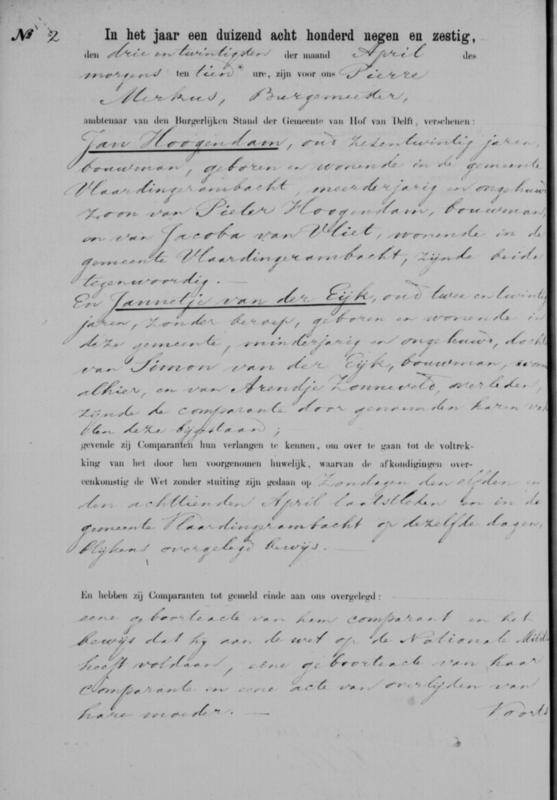 No 2 In het jaar een duizend acht honderd negen en zestig,
den drie en twintigsten der maand April des
morgens ten tien ure, zijn voor ons Pierre
Merkus, Burgemeester,
ambtenaar van den Burgerlijken Stand der Gemeente van Hof van Delft, verschenen:
Jan Hoogendam, oud zesentwintig jaren,
bouwman, geboren en wonende in de gemeente
Vlaardingerambacht, meerderjarig en ongehuwd
zoon van Pieter Hoogendam, bouwman,
en van Jacoba van Vliet, wonende in de
gemeente Vlaardingerambacht, zijnde beide
tegenwoordig. —
En Jannetje van der Eijk, oud twee en twintig
jaren, zonder beroep, geboren en wonende in
deze gemeente, minderjarig en ongehuwd, docht
van Simon van der Eijk, bouwman,
alhier, en van Arendje Zonneveld, overleden,
zijnde de comparante door genoemden haren va
ten deze bijgestaan;
gevende zij Comparanten hun verlangen te kennen, om over te gaan tot de voltrek-
king van het door hen voorgenomen huwelijk, waarvan de afkondigingen over-
eenkomstig de Wet zonder stuiting zijn gedaan op Zondagen den elfden en
den achttienden April laatstleden en in de
gemeente Vlaardingerambacht op dezelfde dagen,
blijkens overgelegd bewijs. —
En hebben zij Comparanten tot gemeld einde aan ons overgelegd:
eene geboorteacte van hem comparant en het
bewijs dat hij aan de wet op de Nationale Militie
heeft voldaan, eene geboorteacte van haar
comparante en eene acte van overlijden van
hare moeder. — Voorts